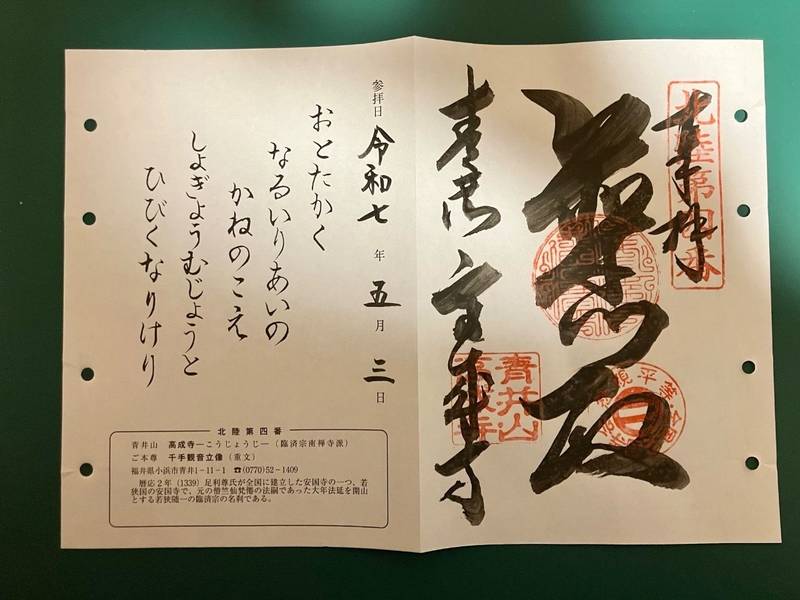 北陸第四番
奉拝
青井山
高成寺
青井山
高成寺
参拝日 令和七年五月三日
おとたかく
なるいりあいの
かねのこえ
しょぎょうむじょうと
ひびくなりけり
北陸第四番
青井山 高成寺―こうじょうじ―（臨済宗南禅寺派）
ご本尊 千手観音立像（重文）
福井県小浜市青井1-11-1 ☎(0770)52-1409
暦応２年（1339）足利尊氏が全国に建立した安国寺の一つ、若
狭国の安国寺で、元の僧竺仙梵僊の法嗣であった大年法延を開山
とする若狭随一の臨済宗の名刹である。